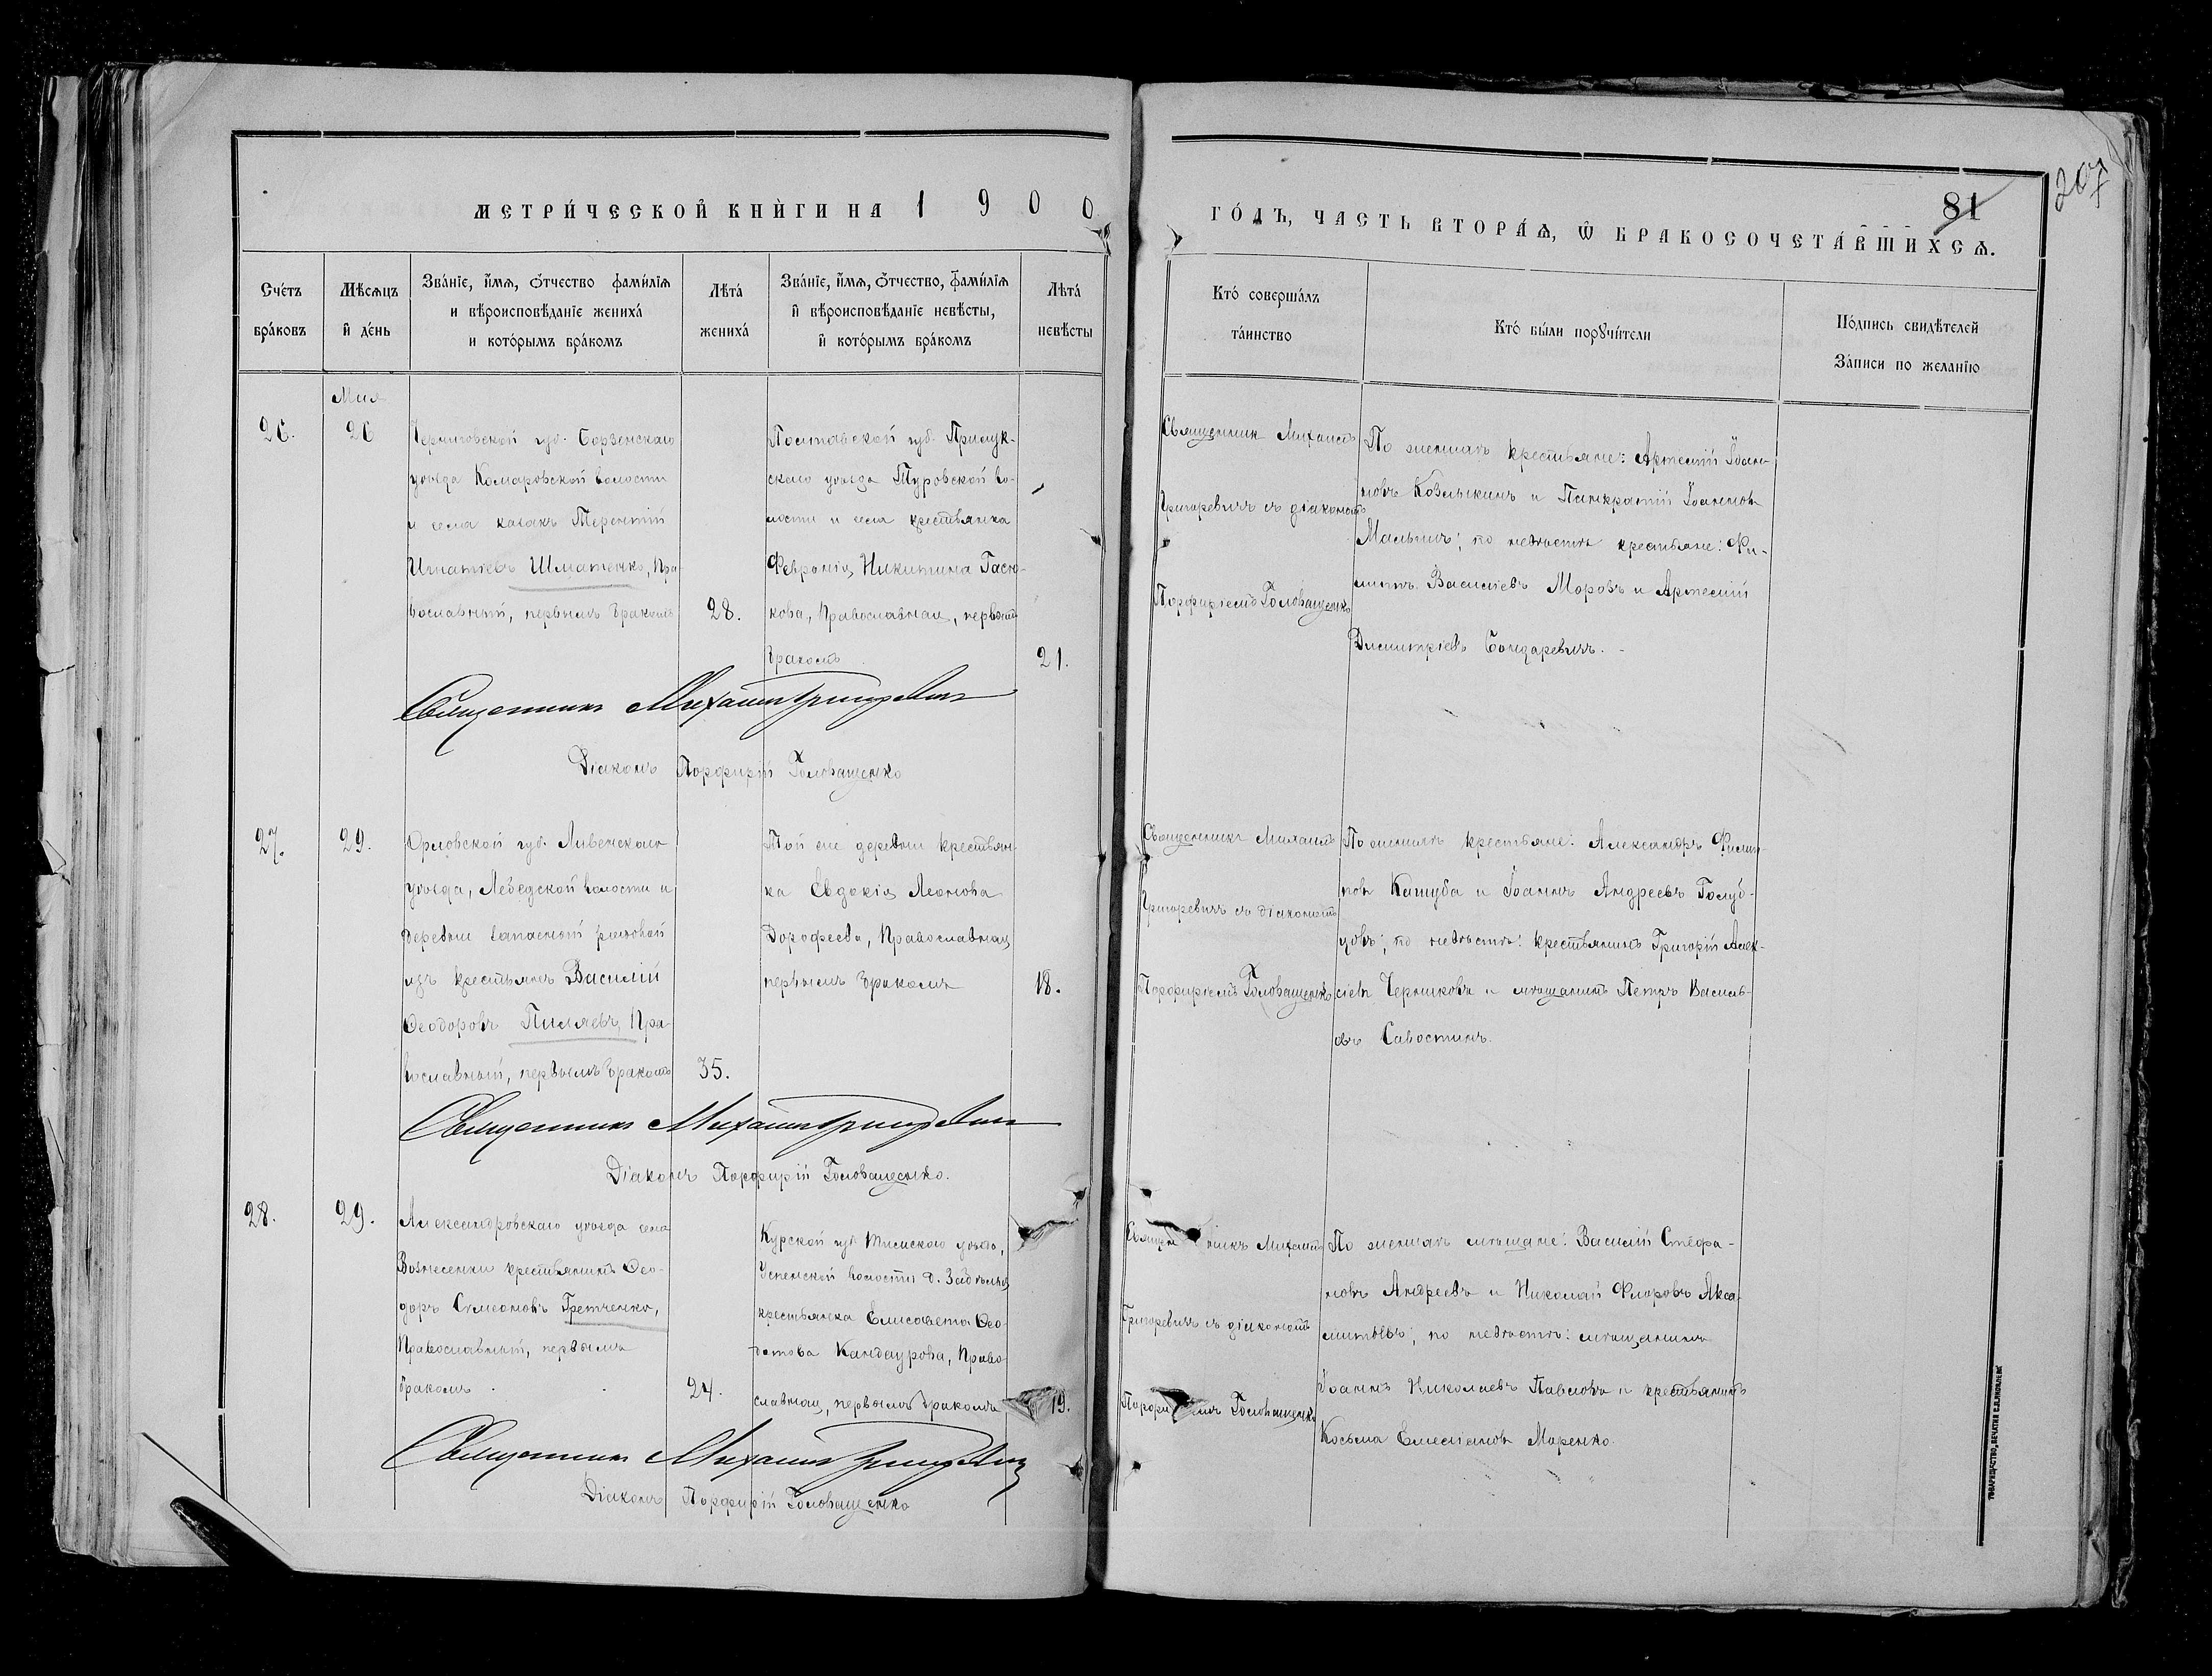 МЕТРИ́ЧЕСКОЙ КНИ́ГИ НА 1900
ГО́ДЪ, ЧАСТЬ ВТОРА́Ѧ, Ѿ БРАКОСОЧЕТА́ВШИХСѦ.
81
207
Сче́тъ
бра́ковъ
Мѣ́сѧцъ
и҆ де́нь
Зва́нїе, и҆́мѧ, ѻ҆́тчество фами́лїѧ
и вѣроисповѣ́данїе жениха́
и кото́рымъ бра́комъ
Лѣта́
жениха́
Зва́нїе, и҆́мѧ, ѻ҆́тчество, фами́лїѧ
и҆ вѣроисповѣ́данїе невѣ́сты,
и҆ кото́рымъ бра́комъ
Лѣта́
невѣ́сты
Кто́ соверша́лъ
та́инство
Кто́ бы́ли порꙋчи́тели
По́дпись свидѣ́телей
За́писи по жела́нїю
Мая
26.
26
Черниговской губ. Борзенскаго
уѣзда Комаровской волости
и села казакъ Терентій
Игнатіевъ Шматенко, Пра-
вославный, первымъ бракомъ
28.
Полтавской губ. Прилук-
скаго уѣзда Туровской во-
лости и села крестьянка
Февронія Никитина Гасю-
кова, Православная, первымъ
бракомъ
21.
Священник Михаилъ
Григоревичъ съ діакономъ
Порфиріемъ Головащенко
По женихѣ крестьяне: Артемій Іоан-
новъ Козлыкинъ и Панкратій Іоанновъ
Мальтинъ; по невѣстѣ крестьяне: Фи-
липпъ Василіевъ Моровъ и Артемій
Димитріевъ Бондаревичъ.
Священникъ Михаилъ Григоревичъ
Діаконъ Порфирій Головащенко
27.
29.
Орловской губ. Ливенскаго
уѣзда, Лебедской волости и
деревни запасной рядовой
изъ крестьянъ Василій
Ѳеодоровъ Пиляевъ, Пра-
вославный, первымъ бракомъ
35.
Той же деревни крестьян-
ка Евдокія Леонова
Дорофеева, Православная
первымъ бракомъ
18.
Священникъ Михаилъ
Григоревичъ съ діакономъ
Порфиріемъ Головащенко
По женихѣ крестьяне: Александръ Филип-
повъ Кашуба и Іоаннъ Андреевъ Голуб-
цовъ; по невѣстѣ: крестьянинъ Григорій Алек-
сіевъ Черниковъ и мѣщанинъ Петръ Василь-
евъ Савостинъ.
Священникъ Михаилъ Григоревичъ
Діаконъ Порфирій Головащенко.
28.
29.
Александровскаго уѣзда села
Вознесенки крестьянинъ Ѳео-
доръ Симеоновъ Гретченко,
Православный, первымъ
бракомъ.
24.
Курской губ. Тимскаго уѣзда,
Успенской волости д.
крестьянка Елисавета Ѳео-
дотова Кандаурова, Право-
славная, первымъ бракомъ
19.
Священникъ Михаилъ
Григоревичъ съ діакономъ
Порфиріемъ Головащенко
По женихѣ мѣщане: Василій Стефа-
новъ Андреевъ и Николай Флоровъ Акса-
митовъ; по невѣстѣ: мѣщанинъ
Іоаннъ Николаевъ Павловъ и крестьянинъ
Косьма Емеліановъ Маренко.
Священникъ Михаилъ Григоревичъ
Діаконъ Порфирій Головащенко